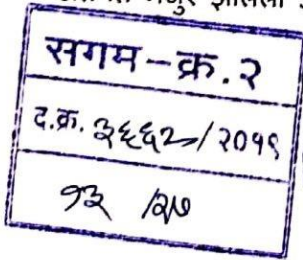 सगम-क्र.२
द.क्र. ३६६२/२०१९
१३ /२७